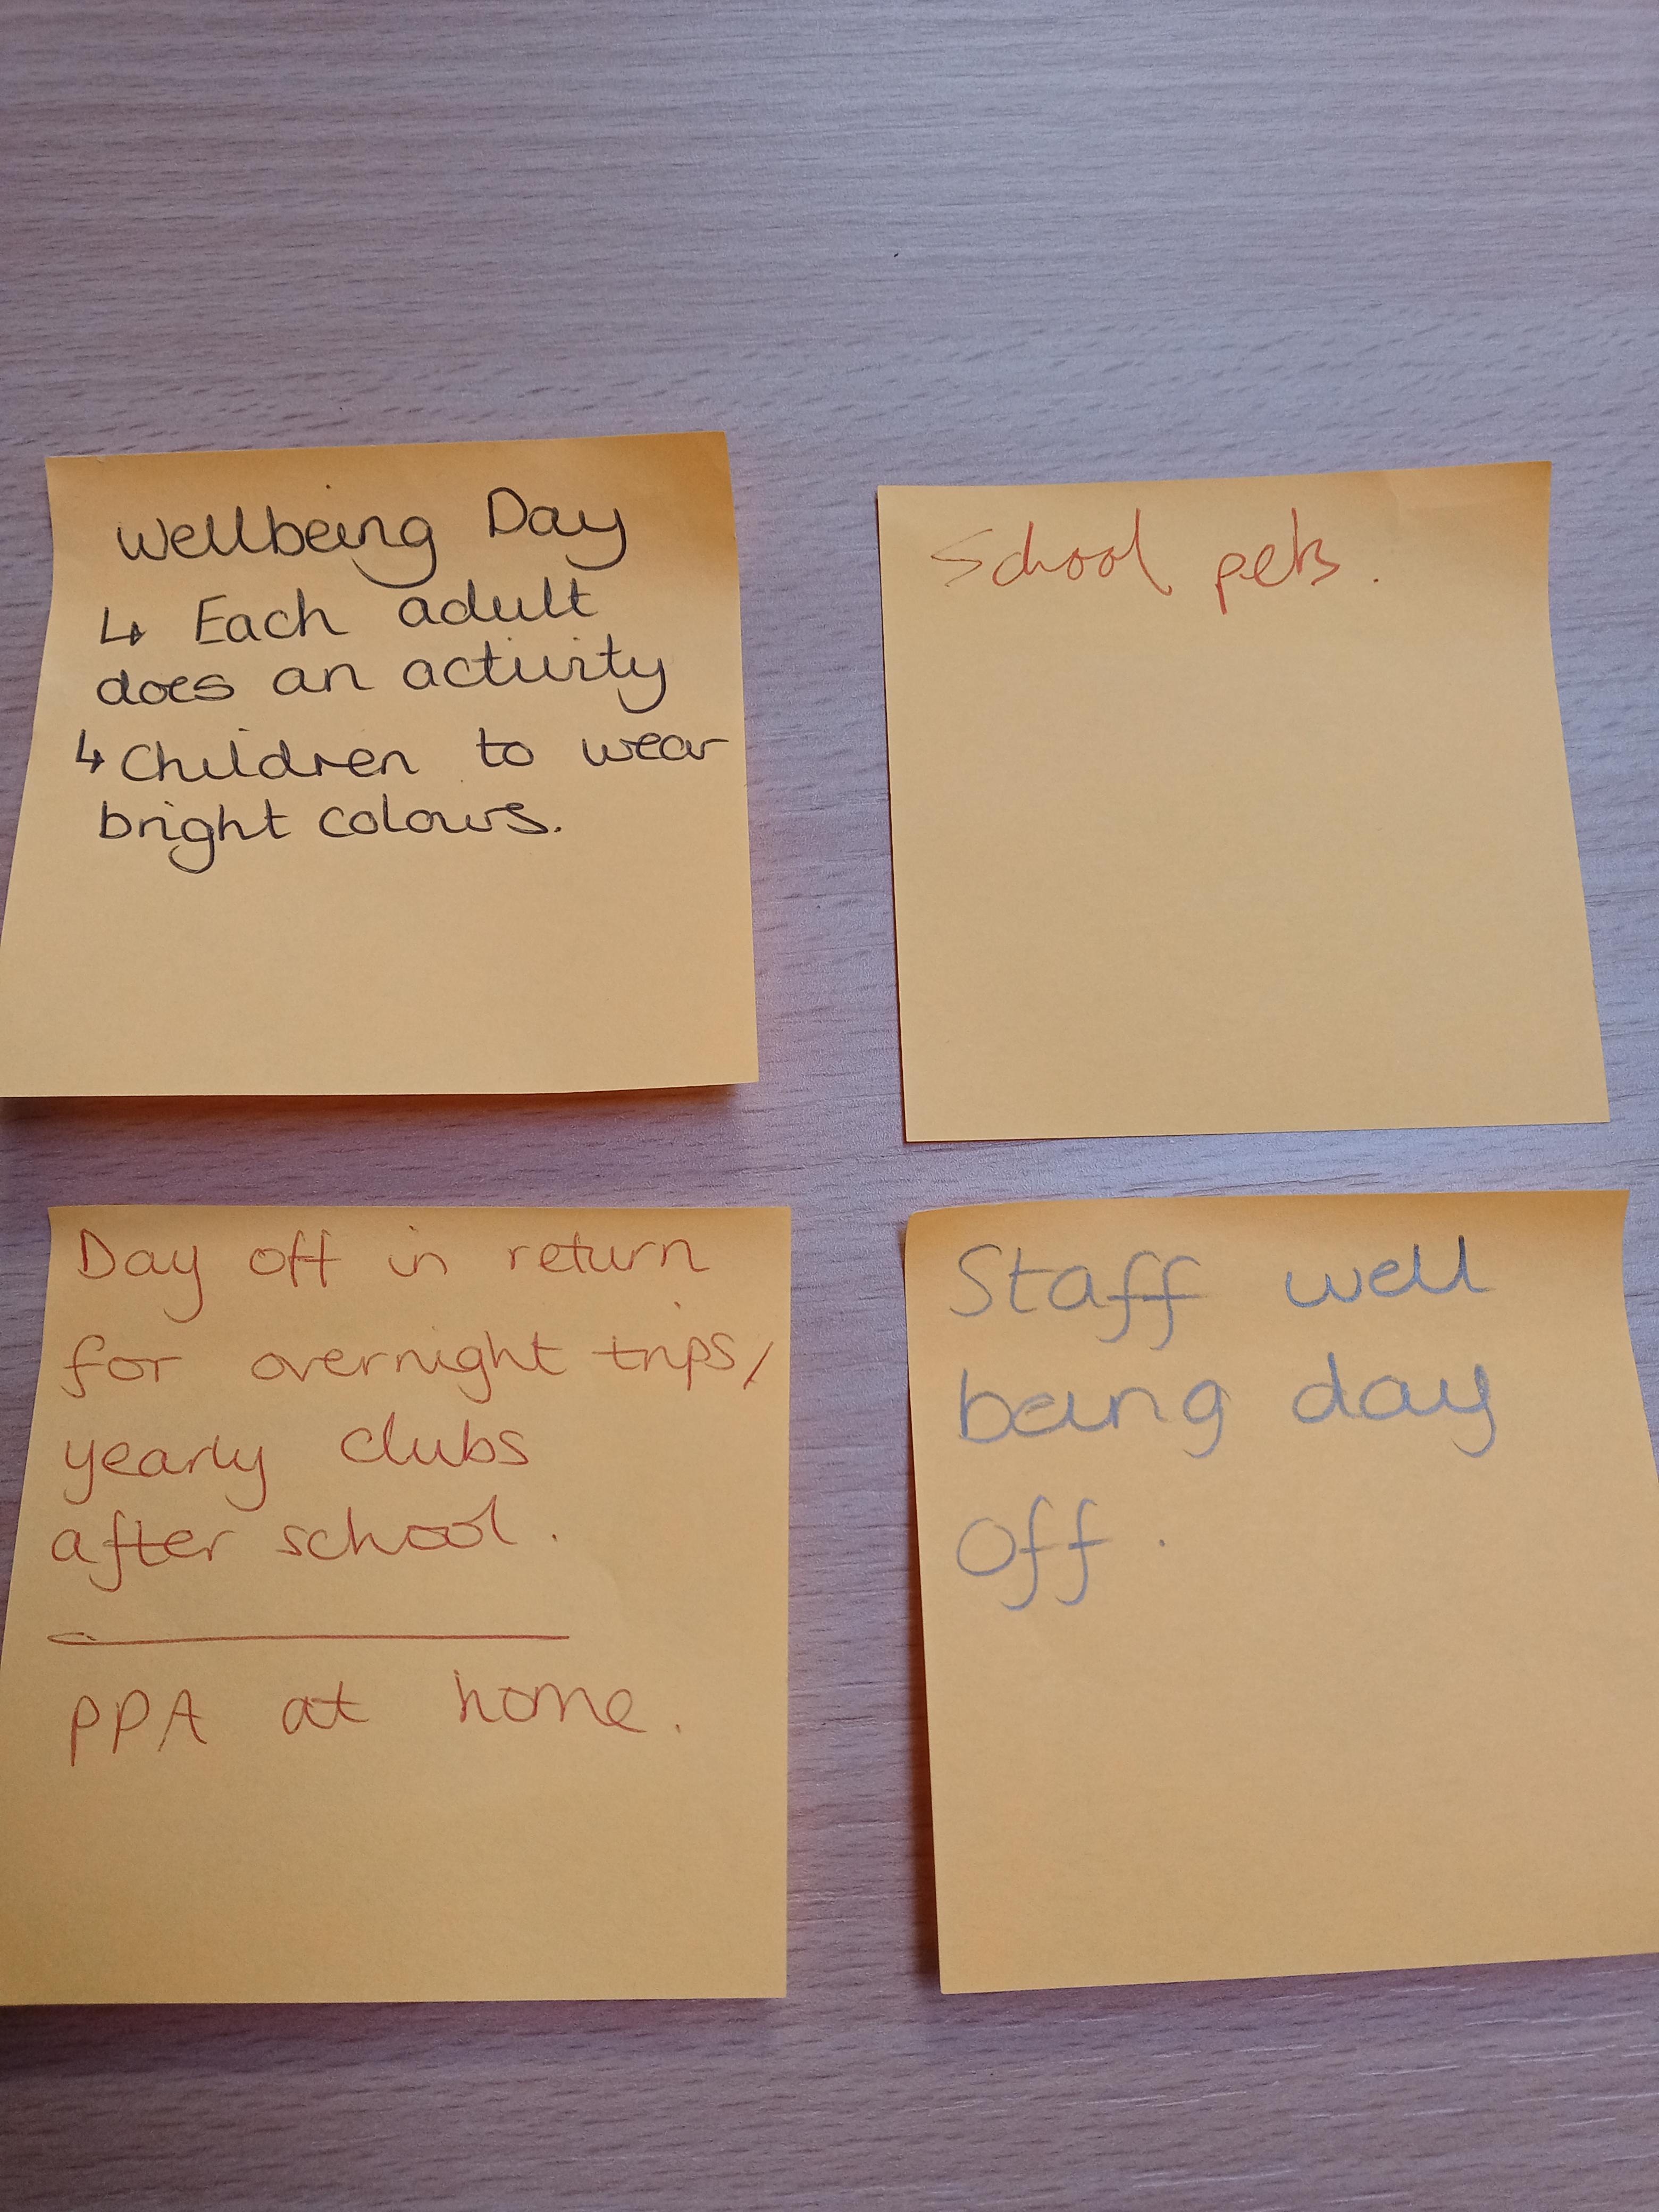 Wellbeing Day
↳ Each adult
does an activity
↳ Children to wear
bright colours.
School pets.
Day off in return
for overnight trips/
yearly clubs
after school.
PPA at home.
Staff well
being day
off.